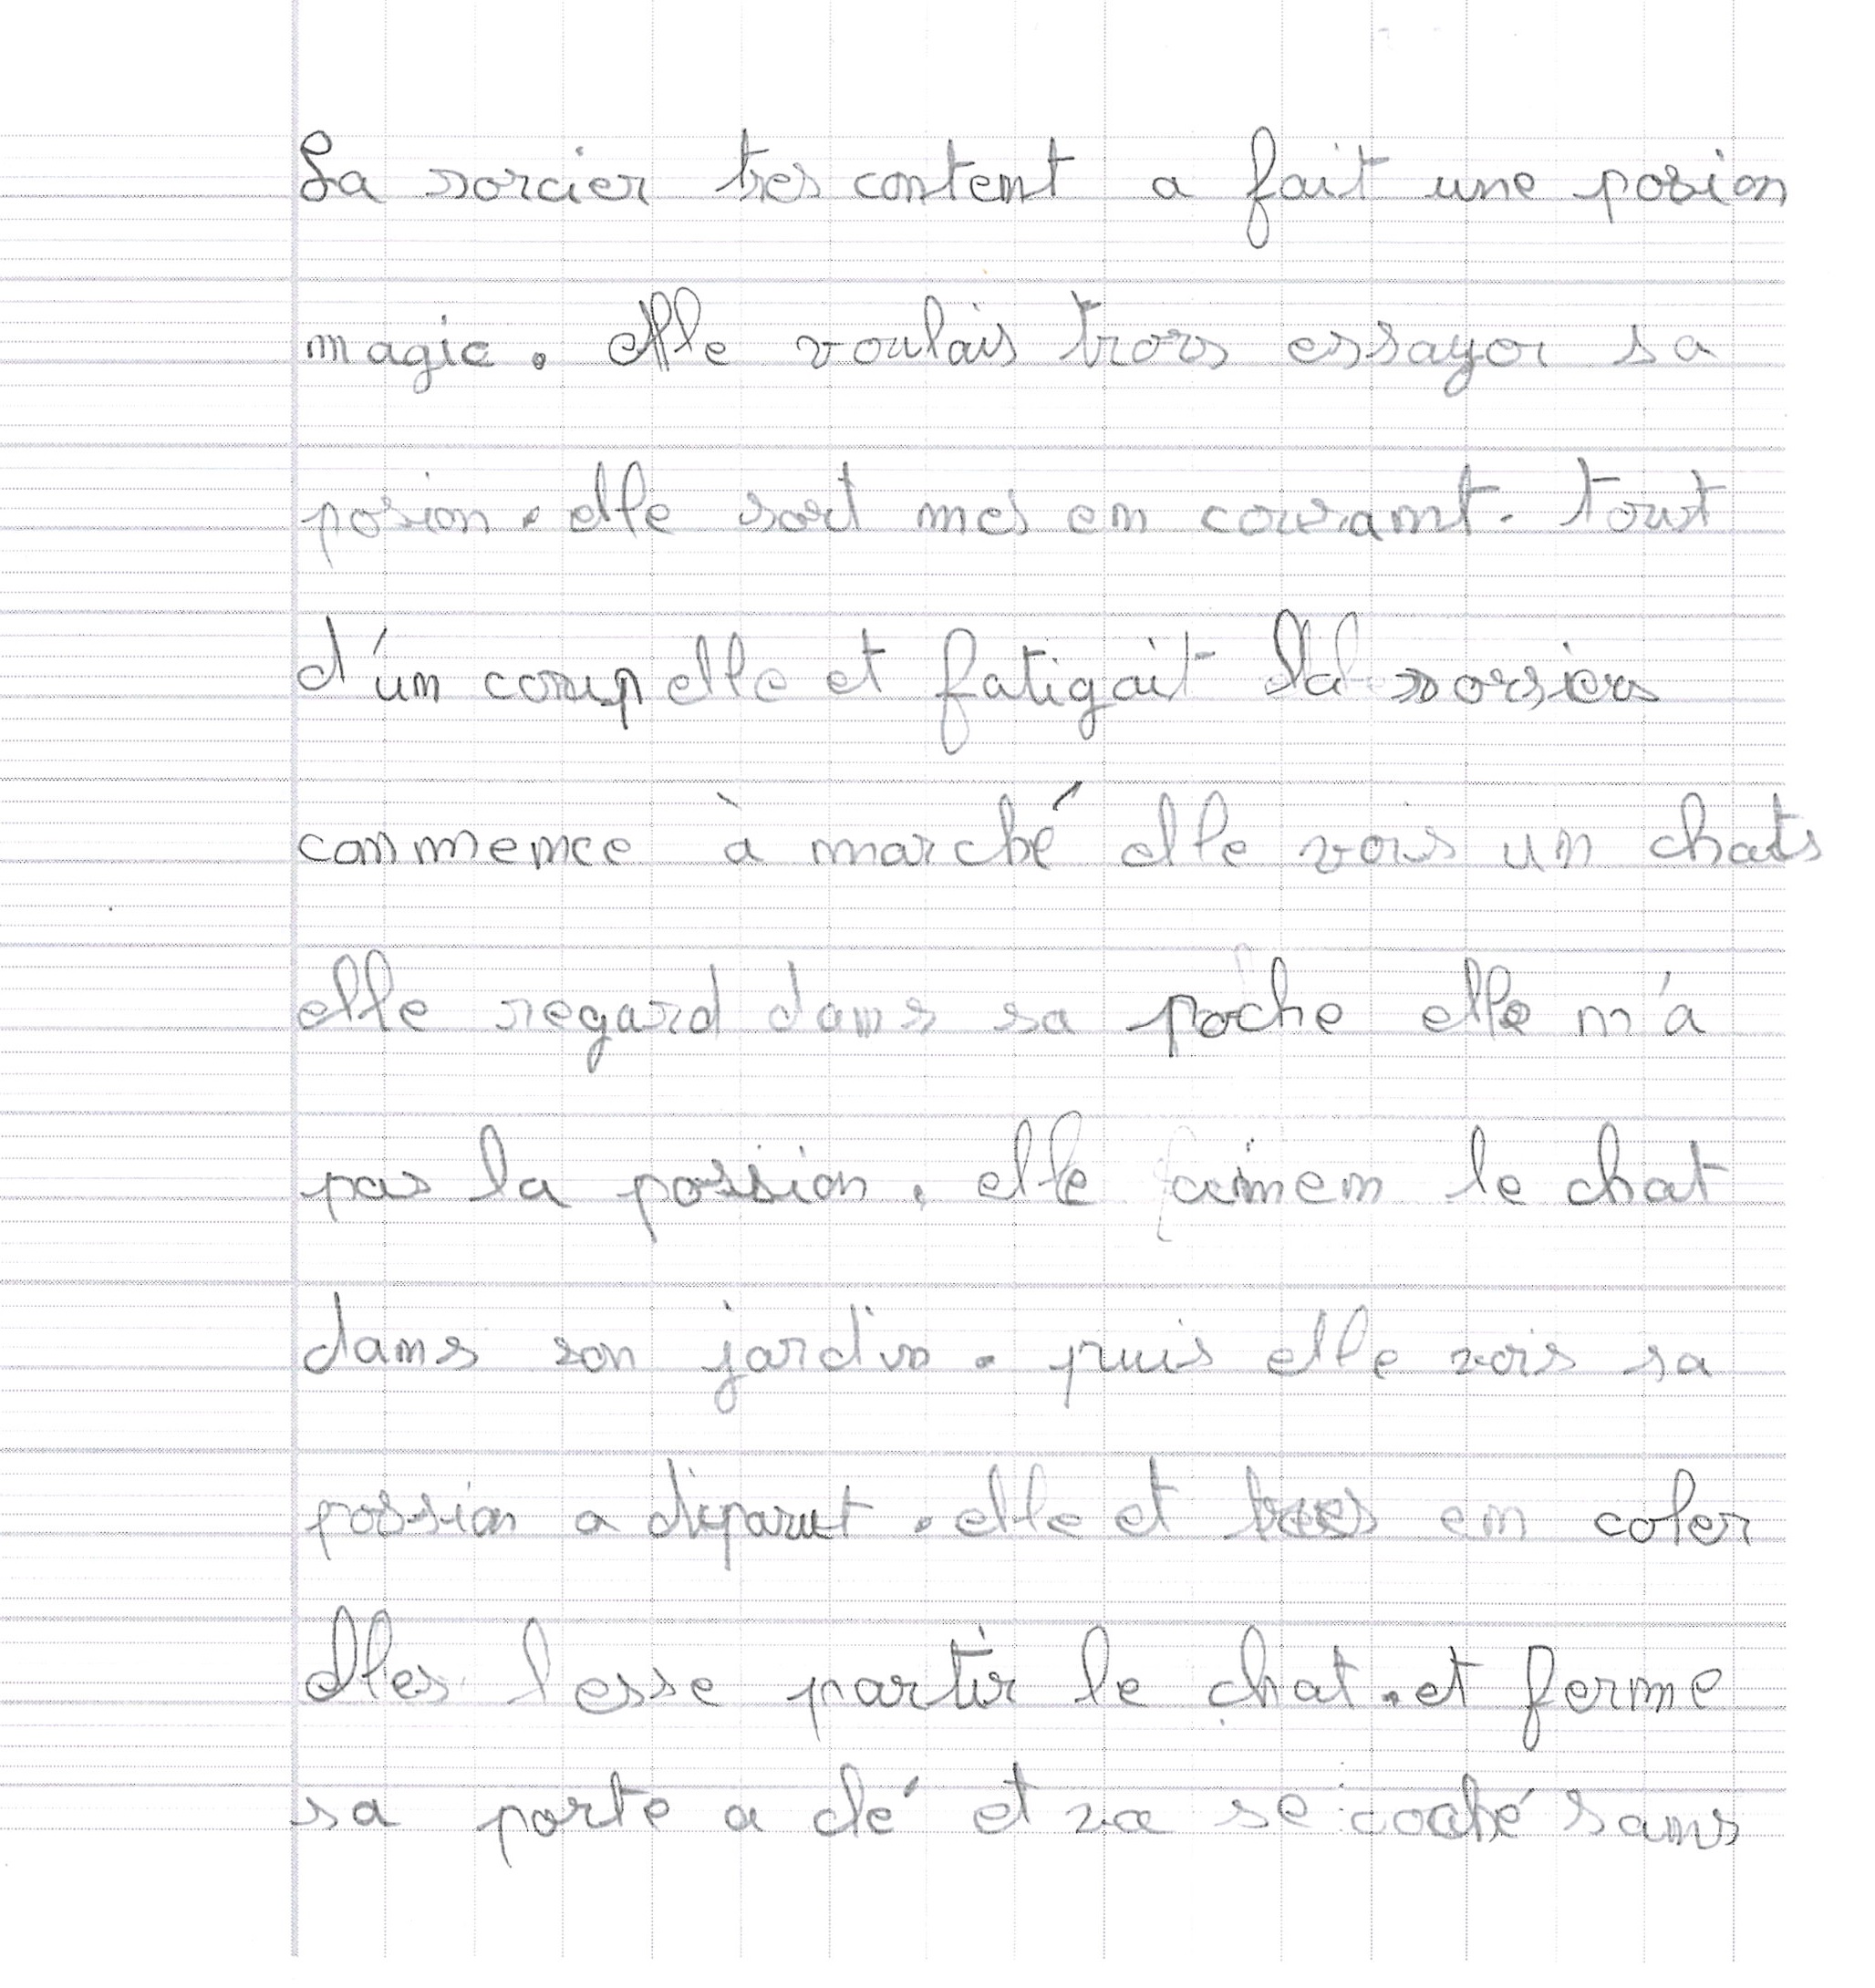 La sorcier tres content a fait une posion
magic. elle voulais trors essayer sa
posion. elle sort mes en courant. tout
d'un coup elle et fatigait la sorsiers
commence à marché elle vois un chats
elle regard dans sa poche elle n'a
pas la possion. elle aimen le chat
dans son jardin. puis elle vois sa
possion a diparut. elle et tres en coler
elles lesse partir le chat. et ferme
sa porte a clé et va se coché sans